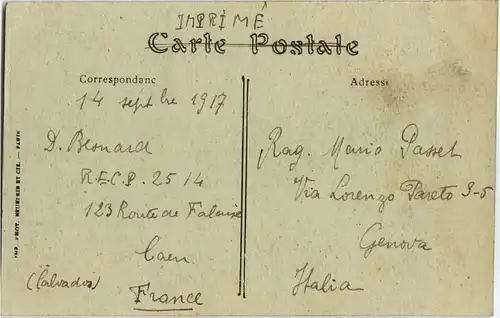 IMPRIMÉ
Carte Postale
Correspondanc
Adresse
14 septbre 1917
D. Besnard
R.E.C.P. 2514
123 Route de Falaise
Caen
(Calvados)
France
Rag. Mario Passet
Via Lorenzo Pareto 3-5
Genova
Italia